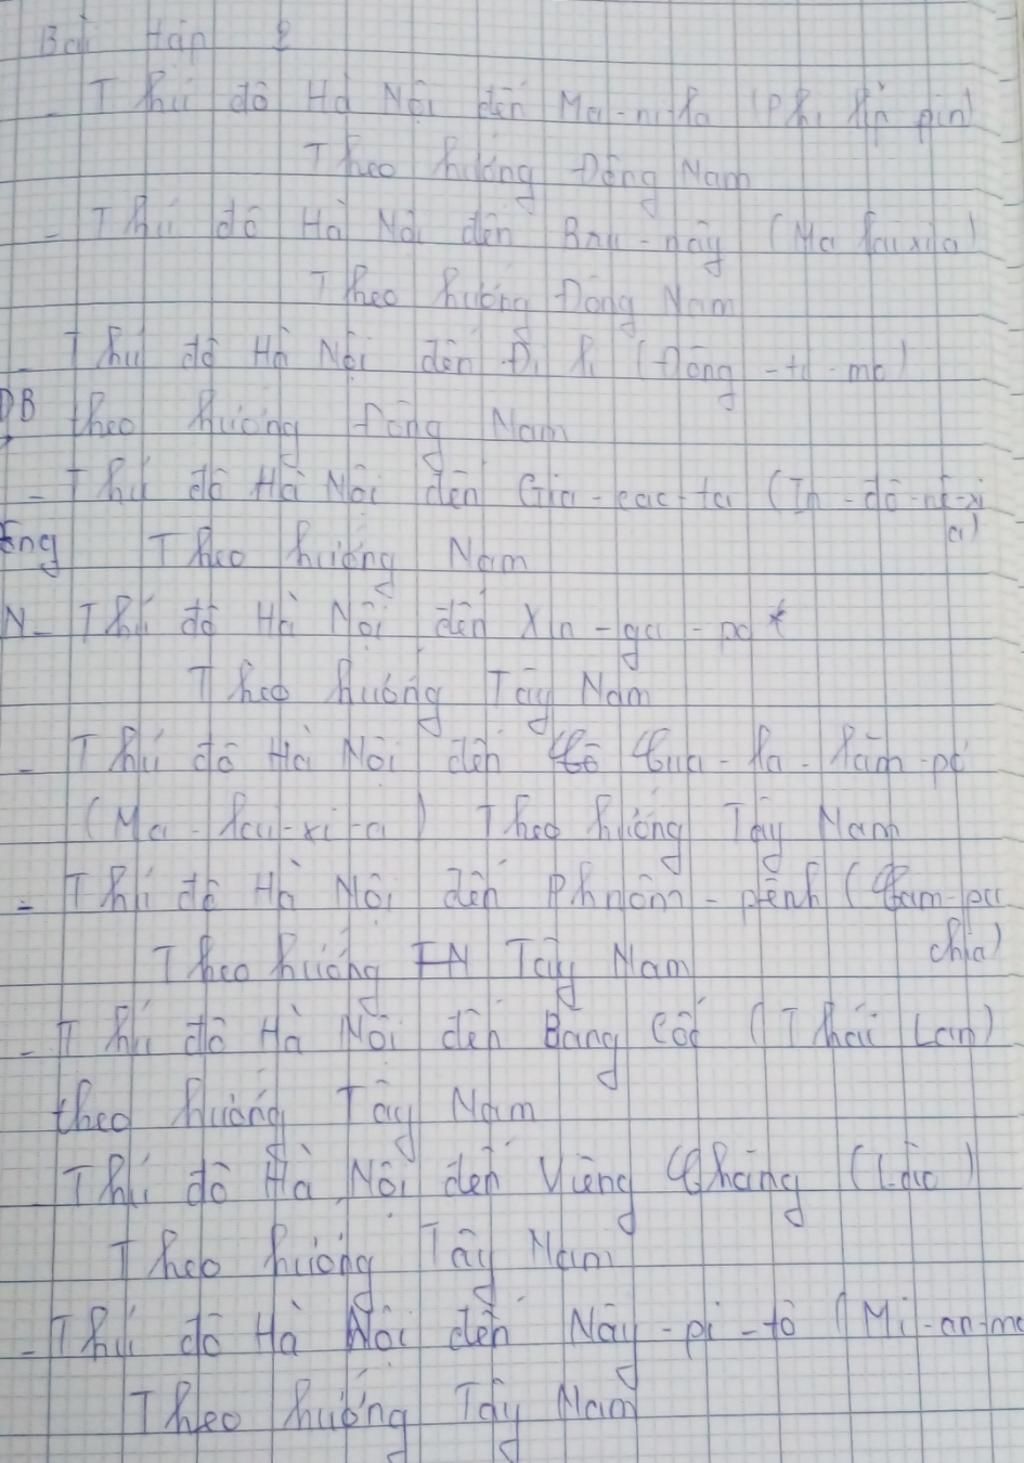 - Thủ đô Hà Nội đến Ma-ni-la (Phi lip pin)
Theo hướng Đông Nam
- Thủ đô Hà Nội đến Bru-nây (Ma laixia)
Theo hướng Đông Nam
- Thủ đô Hà Nội đến Đi li (Đông-ti-mo)
ĐB theo hướng Đông Nam
- Thủ đô Hà Nội đến Gia-cac-ta (In-đô-nê-xi
a)
Theo hướng Nam
N- Thủ đô Hà Nội đến Xin-ga-po
Theo hướng Tây Nam
- Thủ đô Hà Nội đến Cua-la-lăm-pơ
(Ma-lai-xi-a) Theo hướng Tây Nam
- Thủ đô Hà Nội đến Phnôm-pênh (Cam-pu
chia)
Theo hướng TN Tây Nam
- Thủ đô Hà Nội đến Băng Cốc (Thái Lan)
theo hướng Tây Nam
- Thủ đô Hà Nội đến Viêng Chăng (Lào)
Theo hướng Tây Nam
- Thủ đô Hà Nội đến Nây-pi-tô (Mi-an-ma
Theo hướng Tây Nam